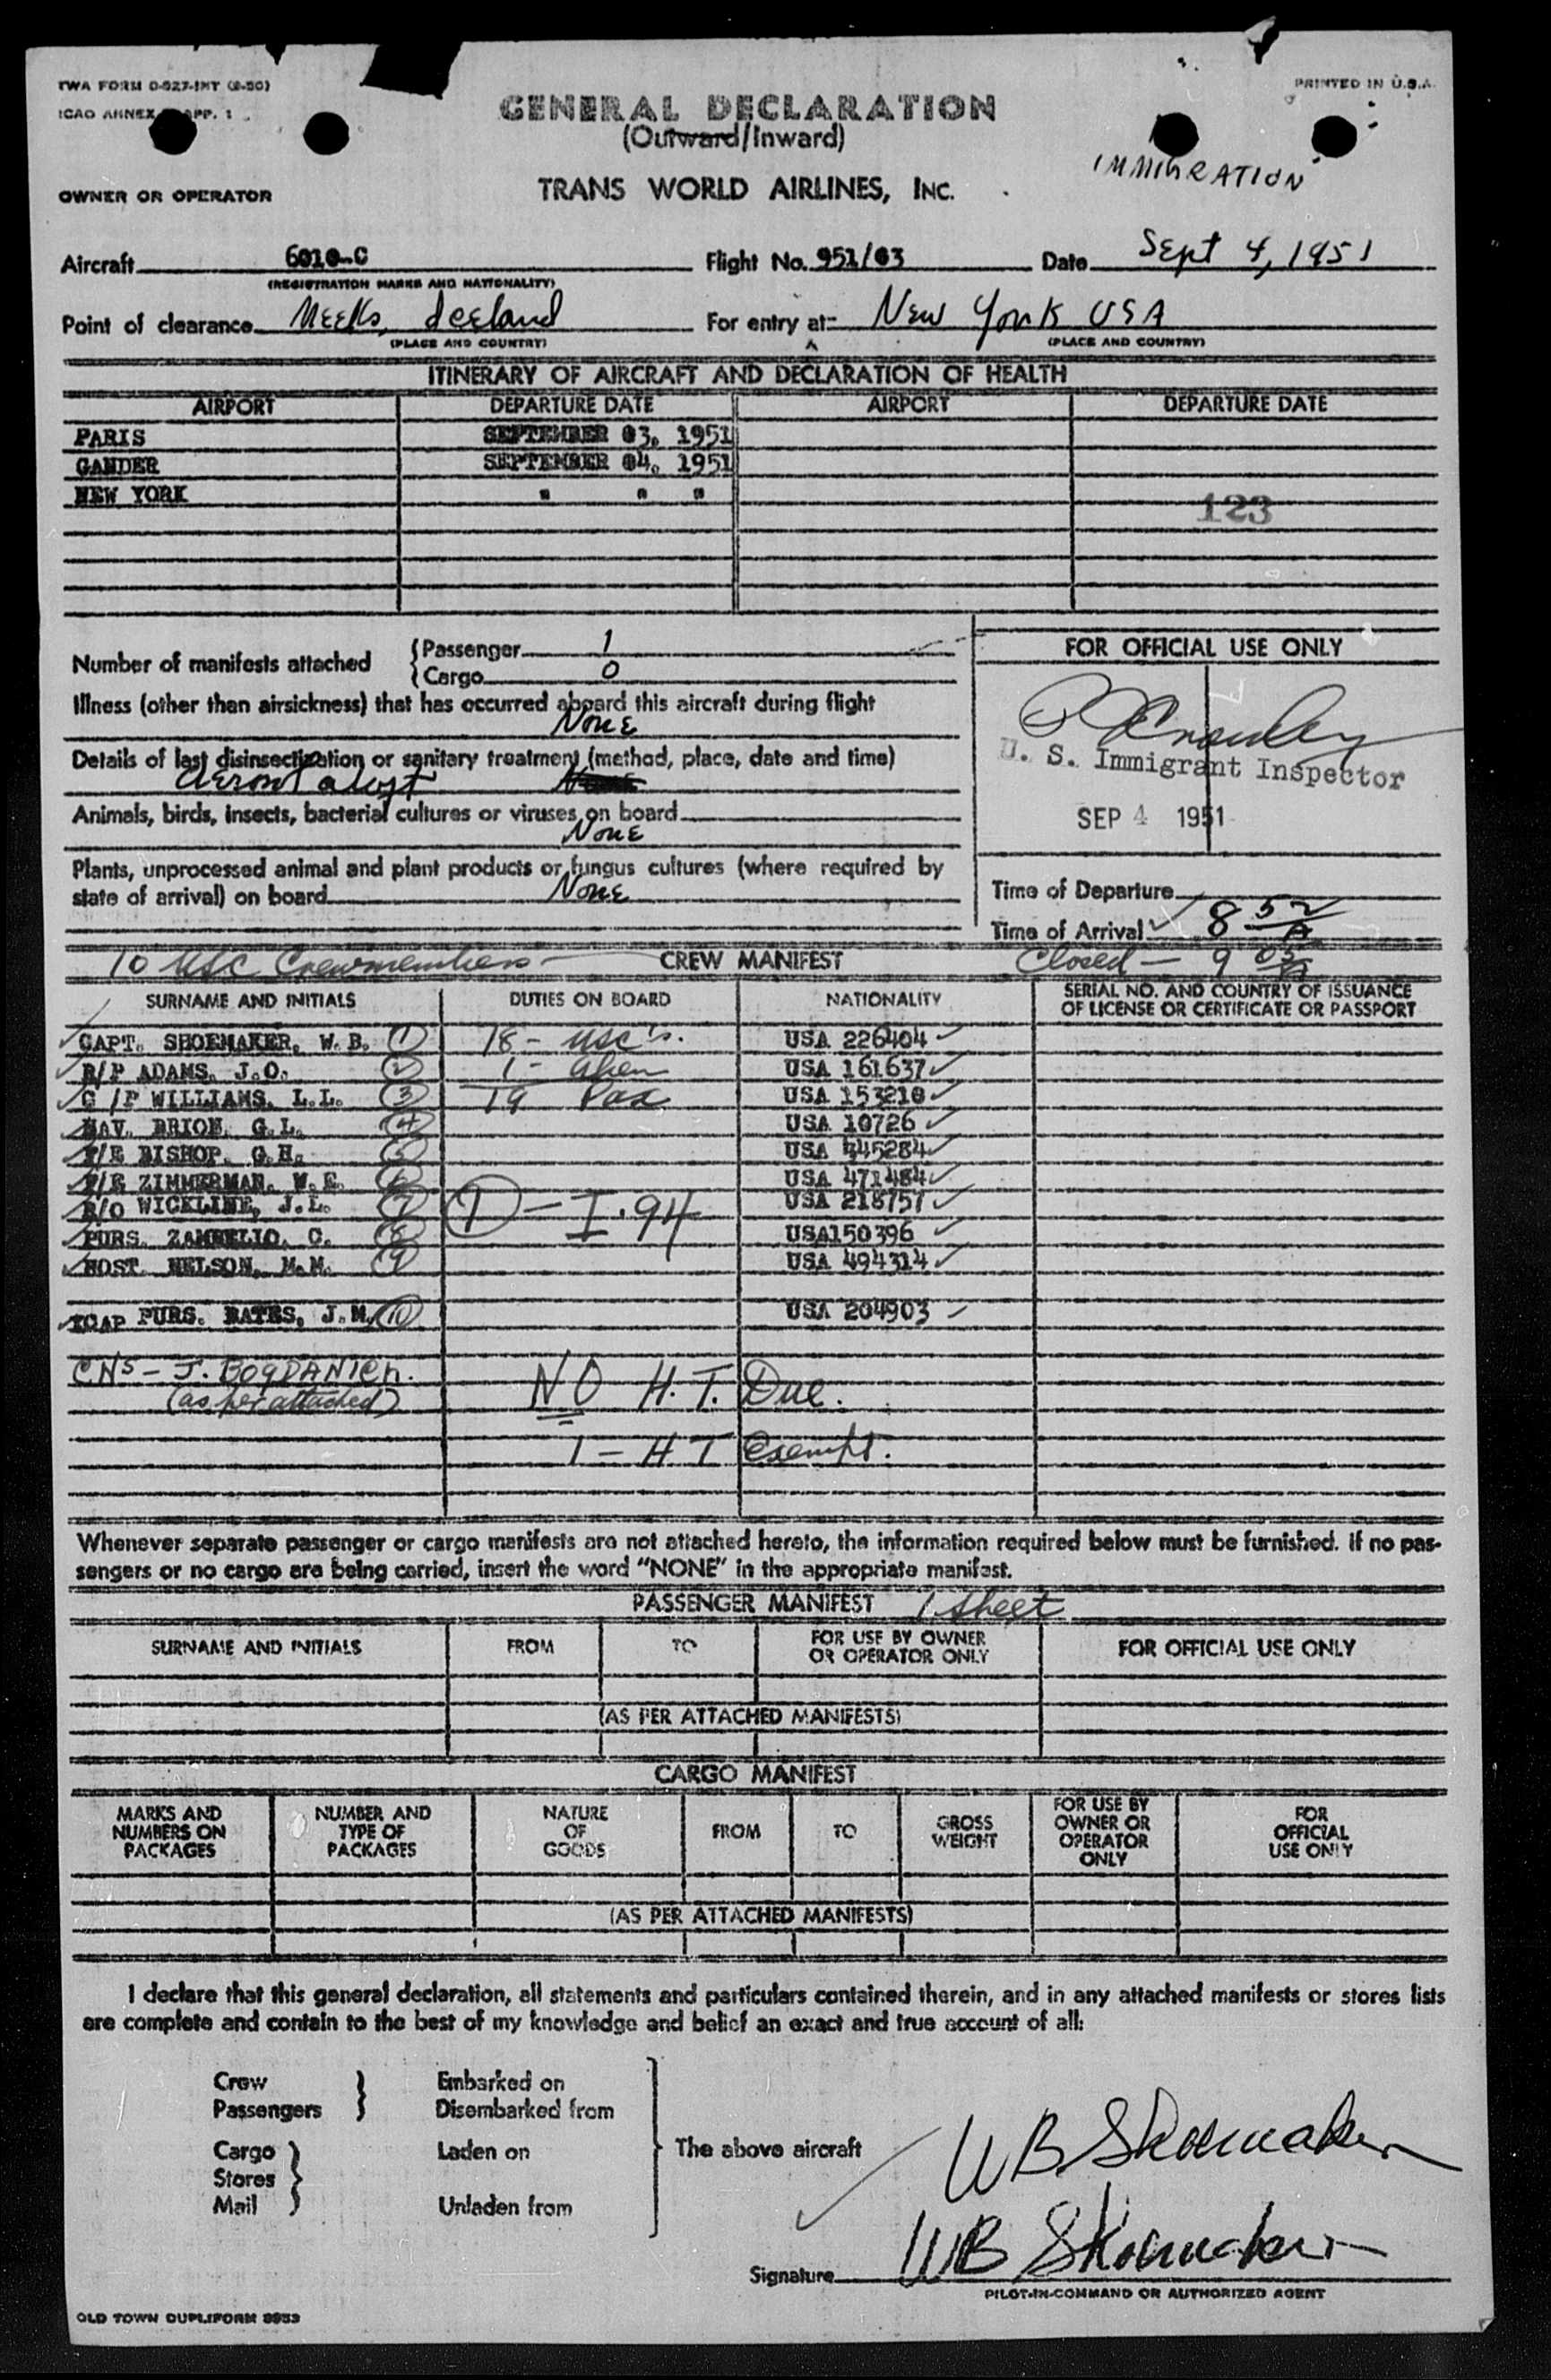 TWA FORM D-927-INT (8-50)
PRINTED IN U.S.A.
ICAO ANNEX APP. 1
GENERAL DECLARATION
(Outward/Inward)
IMMIGRATION
OWNER OR OPERATOR
TRANS WORLD AIRLINES, INC.
Aircraft 6010-C Flight No. 951/03 Date Sept 4, 1951
(REGISTRATION MARKS AND NATIONALITY)
Point of clearance Meeks, Iceland For entry at New York USA
(PLACE AND COUNTRY) (PLACE AND COUNTRY)
ITINERARY OF AIRCRAFT AND DECLARATION OF HEALTH
AIRPORT DEPARTURE DATE AIRPORT DEPARTURE DATE
PARIS SEPTEMBER 03, 1951
GANDER SEPTEMBER 04, 1951
NEW YORK " " "
123
Number of manifests attached { Passenger 1
{ Cargo 0
FOR OFFICIAL USE ONLY
Illness (other than airsickness) that has occurred aboard this aircraft during flight
None
Details of last disinsectization or sanitary treatment (method, place, date and time)
U. S. Immigrant Inspector
SEP 4 1951
Animals, birds, insects, bacterial cultures or viruses on board
None
Plants, unprocessed animal and plant products or fungus cultures (where required by
state of arrival) on board None
Time of Departure
Time of Arrival 8 52 A
10 USC Crewmembers CREW MANIFEST Closed — 9 05 A
SURNAME AND INITIALS DUTIES ON BOARD NATIONALITY SERIAL NO. AND COUNTRY OF ISSUANCE
OF LICENSE OR CERTIFICATE OR PASSPORT
CAPT. SHOEMAKER, W.B. 1 78 - USC's. USA 226404
R/P ADAMS, J.O. 2 1 - Alien USA 161637
C/P WILLIAMS, L.L. 3 79 Pax USA 153210
NAV. BRION, G.L. 4 USA 10726
F/E BISHOP, G.H. 5 USA 445284
F/E ZIMMERMAN, W.E. 6 USA 471484
R/O WICKLINE, J.L. 7 1 - I.94 USA 218757
PURS. ZAMBELIO, C. 8 USA150396
HOST. NELSON, M.M. 9 USA 494314
PURS. BATES, J.M. 10 USA 204903
CNS - J. BOGDANICH.
(as per attached)
NO H.T. Due.
1 - H T Exempt.
Whenever separate passenger or cargo manifests are not attached hereto, the information required below must be furnished. If no pas-
sengers or no cargo are being carried, insert the word "NONE" in the appropriate manifest.
PASSENGER MANIFEST 1 sheet
SURNAME AND INITIALS FROM TO FOR USE BY OWNER OR OPERATOR ONLY FOR OFFICIAL USE ONLY
(AS PER ATTACHED MANIFESTS)
CARGO MANIFEST
MARKS AND NUMBERS ON PACKAGES NUMBER AND TYPE OF PACKAGES NATURE OF GOODS FROM TO GROSS WEIGHT FOR USE BY OWNER OR OPERATOR ONLY FOR OFFICIAL USE ONLY
(AS PER ATTACHED MANIFESTS)
I declare that this general declaration, all statements and particulars contained therein, and in any attached manifests or stores lists
are complete and contain to the best of my knowledge and belief an exact and true account of all:
Crew Embarked on
Passengers Disembarked from
Cargo Laden on The above aircraft WB Shoemaker
Stores
Mail Unladen from
Signature WB Shoemaker
PILOT-IN-COMMAND OR AUTHORIZED AGENT
OLD TOWN DUPLIFORM 8953